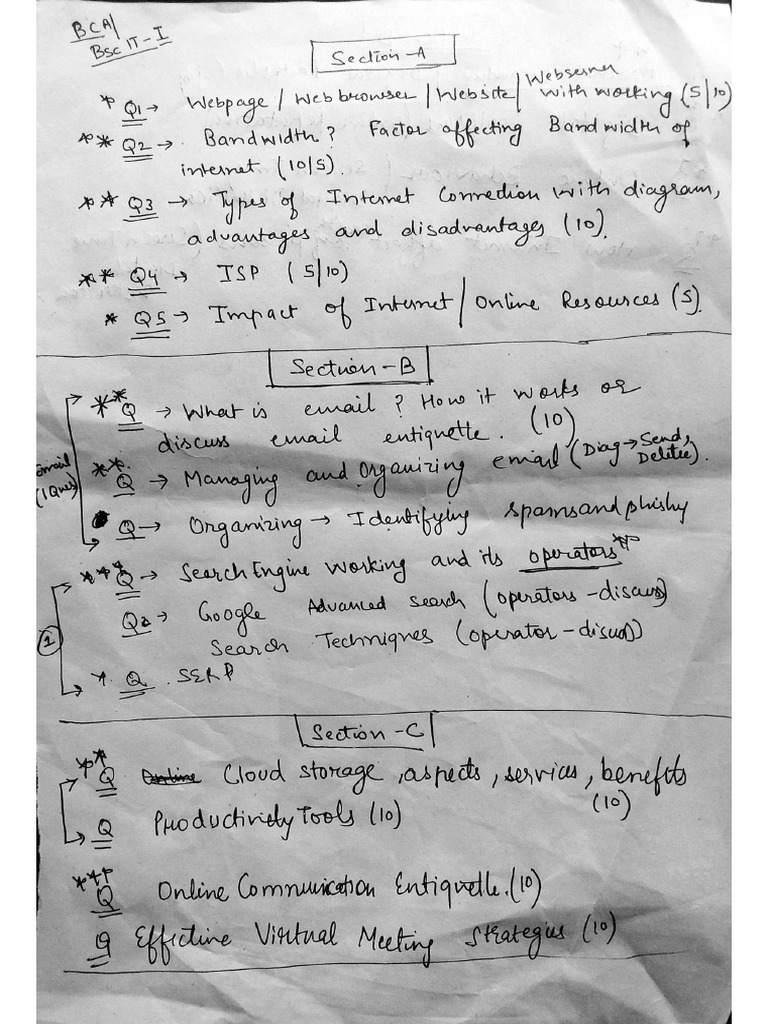 BCA/
BSc IT-I
Section-A
* Q1→ Webpage / Webbrowser / Website / Webserver
with working (5/10)
** Q2→ Bandwidth? Factor affecting Bandwidth of
internet (10/5).
** Q3 → Types of Internet Connection with diagram,
advantages and disadvantages (10).
** Q4 → ISP (5/10)
* Q5 → Impact of Internet / Online Resources (5).
Section-B
** Q → What is email? How it works or
discuss email entiquette. (10)
email
(1 Ques)
** Q → Managing and Organizing email (Diag → Send,
Delitee).
Q → Organizing → Identifying spamsandphishy
*** Q → Search Engine Working and its operators **
Q2 Google Advanced search (operators - discuss)
1
Search Techniques (operator - discuss)
* Q. SERP
Section-C
** Q Online Cloud storage, aspects, services, benefits
(10)
Q Productivity Tools (10)
*** Q Online Communication Entiquette. (10)
Q Effective Virtual Meeting Strategies (10)